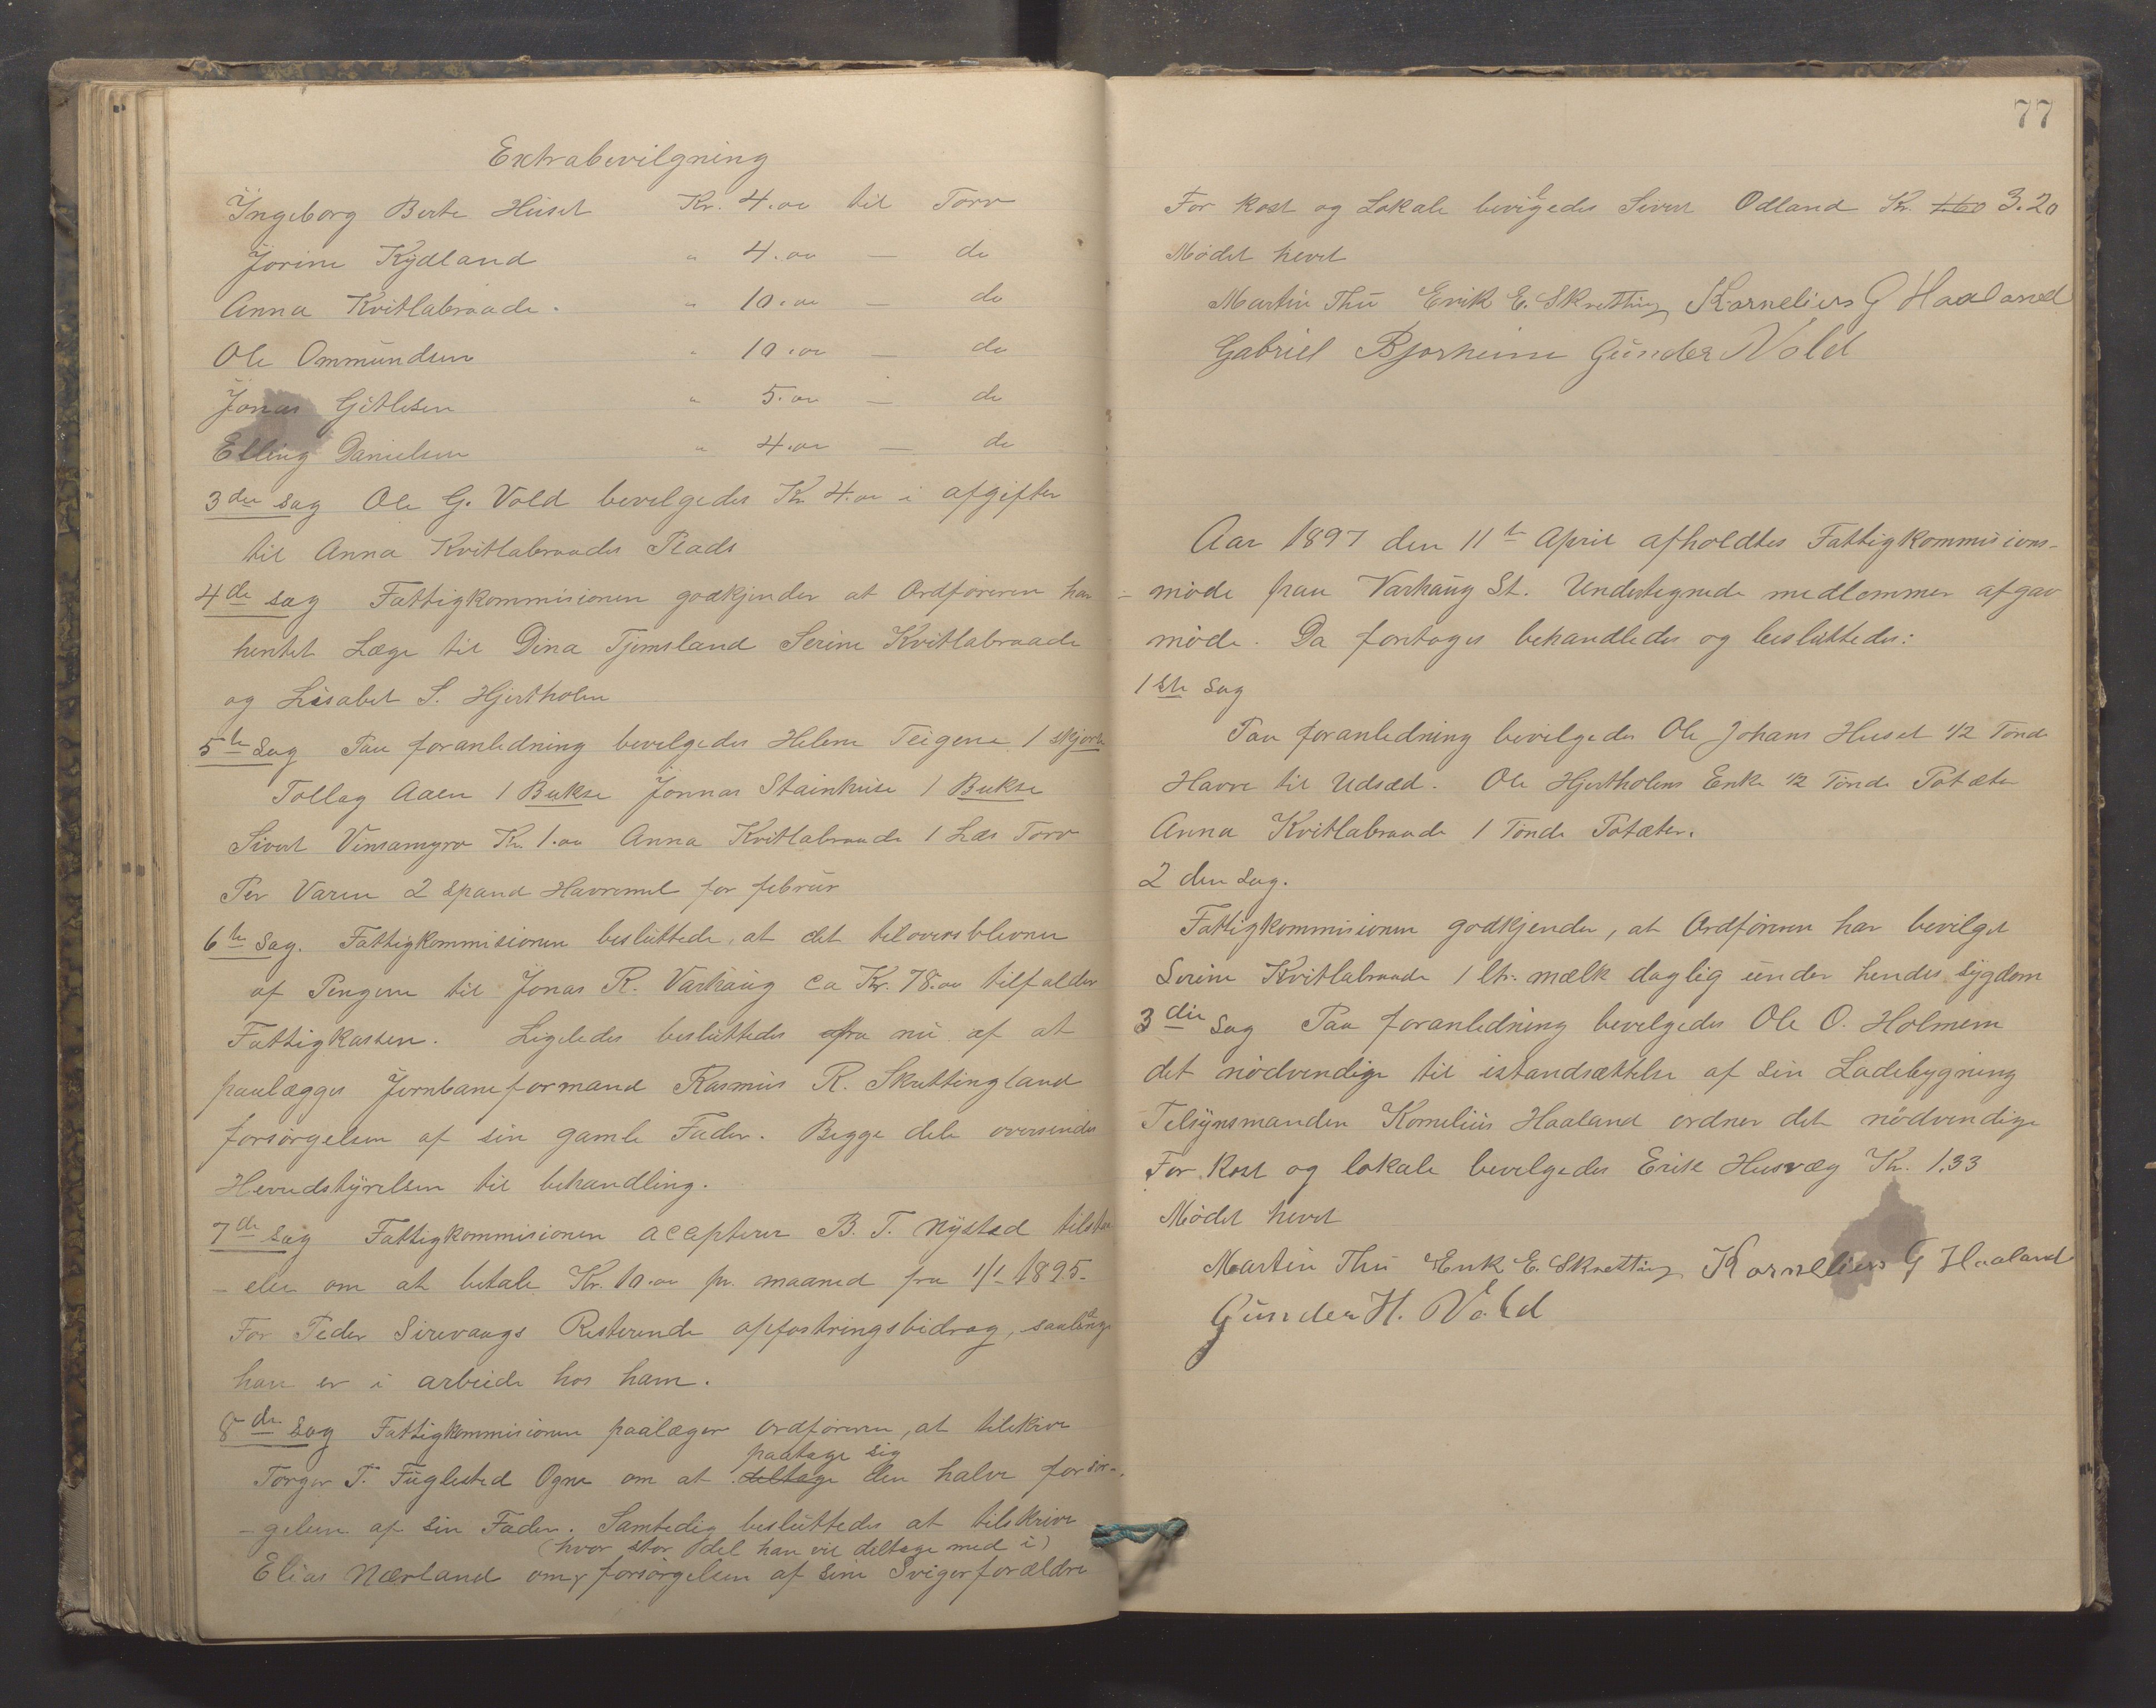 Extrabevilgning
Ingeborg Berte Huset Kr. 4.00 til Torv
Jorine Kydland " 4.00 — do
Anna Kvitlabraade. " 10.00 — do
Ole Ommundsen " 10.00 — do
Jonas Gitlesen " 5.00 — do
Elling Danielsen " 4.00 — do
3die sag Ole G. Vold bevelgedes Kr 4.00 i afgifter
til Anna Kvitlabraades Plads
4de sag Fattigkommisionen godkjender at Ordføreren har
hentet Læge til Dina Tjemsland Serine Kvitlabraade
og Lisabet S. Hjertholen
5te Sag Paa foranledning bevelgedes Helene Teigene 1 skjorte
Tollag Aaen 1 Bukse Jonnas Stainhuse 1 Bukse
Sivert Vensamyro Kr. 1.00 Anna Kvitlabraade 1 Læs Torv
Per Varen 2 spand Havremel for februr
6te Sag. Fattigkommisionen besluttede, at det teloversblevne
af Pengene til Jonas R. Varhaug ca Kr. 78.00 tilfalder
Fattigkassen. Ligeledes besluttedes nu af at
paalægges Jernbaneformand Rasmus R. Skrettingland
forsørgelsen af sin gamle Fader. Begge dele oversendes
Heredstyrelsen til behandling.
7de Sag Fattigkommisionen accepterer B. T. Nysted tilsta
- else om at betale Kr. 10.00 pr. maaned fra 1/1 1895-
For Peder Sirevaags Resterende opfostringsbidrag, saalænge
han er i arbeide hos ham.
8de Sag Fattigkommisionen paalæger ordføreren, at tilskrive
paatage sig
Torger T. Fuglested Ogne om at deltage den halve forsør-
- gelsen af sin Fader. Samtedig besluttedes at tilskrive
(hvor stor del han vil deltage med i)
Elias Nærland om forsørgelsen af sine Svigerforældre
77
For kost og Lokale bevilgedes Sivert Odland Kr. 1.60 3.20
Mødet hevet
Martin Thu Erik E. Skretting Kornelius G Haaland
Gabriel Bjorheim Gunder Vold
Aar 1897 den 11te April afholdtes Fattigkommisions-
- møde paa Varhaug St. Undertegnede medlemmer afgav
møde. Da foretoges behandledes og besluttedes:
1ste Sag
Paa foranledning bevilgedes Ole Johans Huset 1/2 Tønde
Havre til Udsæd. Ole Hjertholens Enke 1/2 Tønde Potæter
Anna Kvitlabraade 1 Tønde Potæter.
2 den Sag.
Fattigkommisionen godkjender, at Ordføreren har bevilget
Serine Kvitlabraade 1 ltr. mælk daglig under hendes sygdom
3die Sag Paa foranledning bevelgedes Ole O. Holmem
det nødvendige til istandsættelse af sin Ladebygning
Telsynsmanden Kornelius Haaland ordner det nødvendige
For Kost og lokale bevelgedes Erik Husvæg Kr. 1.33
Mødet hevet
Martin Thu Erik E. Skretting Kornelius G Haaland
Gunder H. Vold